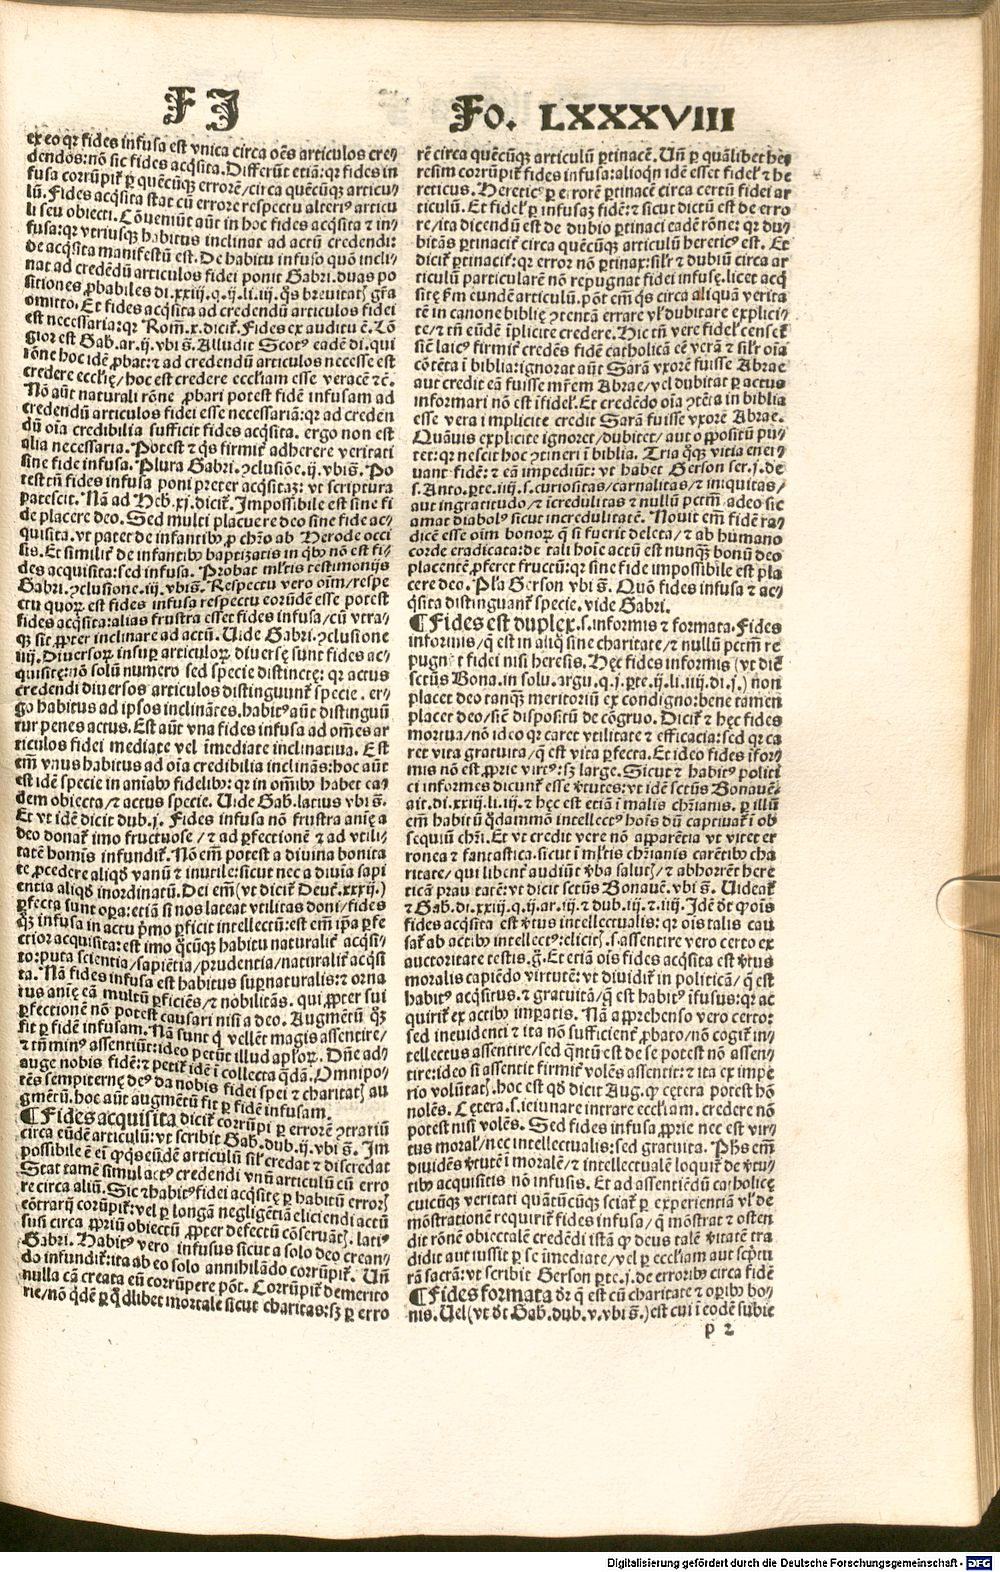 F J
Fo. LXXXVIII
ex eo qꝛ fides infusa est vnica circa oēs articulos cre⸗
dendos: nō sic fides acq̄sita. Differūt etiā: qꝛ fides in
fusa corrūpit̄ ꝑ quēcūqꝫ errorē/circa quēcūqꝫ articu⸗
lū. Fides acq̄sita stat cū errore respectu alteriꝰ articu
li seu obiecti. Cōueniūt aūt in hoc fides acq̄sita ⁊ in⸗
fusa: qꝛ vtriusqꝫ habitus inclinat ad actū credendi:
de acq̄sita manifestū est. De habitu infuso quō incli⸗
nat ad credēdū articulos fidei ponit Gabri. duas po
sitiones ꝓbabiles di. xxiij. q. ij. li. iij. q̄s breuitatꝭ gr̄a
omitto. Et fides acq̄sita ad credendū articulos fidei
est necessaria: qꝛ Rom̄. x. dicit̄. Fides ex auditu ē. Lō
gior est Gab. ar. ij. vbi s̄. Alludit Scotꝰ eadē di. qui
rōne hoc idē ꝓbat: ⁊ ad credendū articulos necesse est
credere eccl̄ię/hoc est credere eccl̄iam esse veracē ⁊c̄.
Nō aūt naturali rōne ꝓbari potest fidē infusam ad
credendū articulos fidei esse necessariā: qꝛ ad creden
dū oīa credibilia sufficit fides acq̄sita. ergo non est
alia necessaria. Potest ⁊ q̄s firmit̄ adherere veritati
sine fide infusa. Plura Gabri. ꝯclusiōe. ij. vbi s̄. Po
test tn̄ fides infusa poni preter acq̄sitaꝫ: vt scriptura
patescit. Nā ad Heb. xj. dicit̄. Impossibile est sine fi
de placere deo. Sed multi placuere deo sine fide ac⸗
quisita. vt patet de infantibꝰ ꝓ chr̄o ab Herode occi
sis. Et similit̄ de infantibꝰ baptizatis in q̄bꝰ nō est fi⸗
des acquisita: sed infusa. Probat ml̄tis testimonijs
Gabri. ꝯclusione. iij. vbi s̄. Respectu vero oīm/respe
ctu quoꝝ est fides infusa respectu eorūdē esse potest
fides acq̄sita: alias frustra esset fides infusa/cū vtra⸗
qꝫ sit ꝓpter inclinare ad actū. Uide Gabri. ꝯclusione
iiij. Diuersoꝝ insuꝑ articuloꝝ diuersę sunt fides ac⸗
quisitę: nō solū numero sed specie distinctę: qꝛ actus
credendi diuersos articulos distinguunt̄ specie. er⸗
go habitus ad ipsos inclinātes. habitꝰ aūt distinguū
tur penes actus. Est aūt vna fides infusa ad om̄es ar
ticulos fidei mediate vel īmediate inclinatiua. Est
em̄ vnus habitus ad oīa credibilia inclinās: hoc aūt
est idē specie in aniabꝰ fideliū: qꝛ in om̄ibꝰ habet ea⸗
dem obiecta/⁊ actus specie. Uide Gab. latius vbi s̄.
Et vt idē dicit dub. j. Fides infusa nō frustra anię a
deo donat̄ imo fructuose/⁊ ad ꝑfectionē ⁊ ad vtili⸗
tatē homīs infundit̄. Nō em̄ potest a diuina bonita
te ꝓcedere aliqd̄ vanū ⁊ inutile: sicut nec a diuīa sapi
entia aliqd̄ inordinatū. Dei em̄ (vt dicit̄ Deut̄. xxxij.)
ꝑfecta sunt oꝑa: etiā si nos lateat vtilitas doni/fides
qꝫ infusa in actu pͥmo ꝑficit intellectū: est em̄ ip̄a ꝑfe
ctior acquisita: est imo q̄cūqꝫ habitu naturalit̄ acq̄si⸗
to: puta scientia/sapiētia/prudentia/naturalit̄ acq̄si
ta. Nā fides infusa est habitus suꝑnaturalis: ⁊ orna
tus anię eā multū ꝑficiēs/⁊ nobilitās. qui ꝓpter sui
ꝑfectionē nō potest causari nisi a deo. Augmētū qꝫ
fit ꝑ fidē infusam. Nā sunt q̄ vellēt magis assentire/
⁊ tn̄ minꝰ assentiūt: ideo petūt illud apl̄oꝝ. Dn̄e ad⸗
auge nobis fidē: ⁊ petit̄ idē ī collecta q̄dā. Omnipo⸗
tēs sempiternę deꝰ da nobis fidei spei ⁊ charitatꝭ au
gmētū. hoc aūt augmētū fit ꝑ fidē infusam.
¶ Fides acquisita dicit̄ corrūpi ꝑ errorē ꝯtrariū
circa eūdē articulū: vt scribit Gab. dub. ij. vbi s̄. Im
possibile ē eī ꝙ q̄s eūdē articulū sil̄ credat ⁊ discredat
Stat tamē simul actꝰ credendi vnū articulū cū erro
re circa aliū. Sic ⁊ habitꝰ fidei acq̄sitę ꝑ habitū errorꝭ
cōtrarij corūpit̄: vel ꝑ longā negligētiā eliciendi actū
suū circa ꝓpriū obiectū ꝓpter defectū cōseruātꝭ. latiꝰ
Gabri. Habitꝰ vero infusus sicut a solo deo crean⸗
do infundit̄: ita ab eo solo annihilādo corrūpit̄. Un̄
nulla cā creata eū corrūpere pōt. Corrūpit̄ demerito
rie/nō q̄dē ꝑ qd̄libet mortale sicut charitas: sꝫ ꝑ erro
rē circa quēcūqꝫ articulū ꝑtinacē. Un̄ ꝑ quālibet he⸗
resim corrūpit̄ fides infusa: alioqn̄ idē esset fidel̓ ⁊ he
reticus. Hereticꝰ ꝑ errorē ꝑtinacē circa certū fidei ar
ticulū. Et fidel̓ ꝑ infusaꝫ fidē: ⁊ sicut dictū est de erro
re/ita dicendū est de dubio ꝑtinaci eadē rōne: qꝛ du⸗
bitās ꝑtinacit̄ circa quēcūqꝫ articulū hereticꝰ est. Et
dicit̄ ꝑtinacit̄: qꝛ error nō ꝑtinax: sil̄r ⁊ dubiū circa ar
ticulū particularē nō repugnat fidei infusę. licet acq̄
sitę fm̄ eundē articulū. pōt em̄ q̄s circa aliquā verita
tē in canone biblię ꝯtentā errare vl̓ dubitare explici⸗
te/⁊ tn̄ eūdē īplicite credere. Hic tn̄ vere fidel̓ censet̄
sic̄ laicꝰ firmit̄ credēs fidē catholicā eē verā ⁊ sil̄r oīa
cōtēta ī biblia: ignorat aūt Sarā vxorē fuisse Abrae
aut credit eā fuisse mr̄em Abrae/vel dubitat ꝑ actus
informari nō est īfidel̓. Et credēdo oīa ꝯtēta in biblia
esse vera implicite credit Sarā fuisse vxorē Abrae.
Quāuis explicite ignoret/dubitet/aut oppositū pu⸗
tet: qꝛ nescit hoc ꝯtineri ī biblia. Tria qꝫ vitia ener⸗
uant fidē: ⁊ eā impediūt: vt habet Gerson ser. j. de
s. Anto. ꝑte. iiij. s. curiositas/carnalitas/⁊ iniquitas/
aut ingratitudo/⁊ īcredulitas ⁊ nullū pctm̄ adeo sic
amat diabolꝰ sicut incredulitatē. Nouit em̄ fidē ra⸗
dicē esse oīm bonoꝝ q̄ si fuerit deleta/⁊ ab humano
corde eradicata: de tali hoīe actū est nunqꝫ bonū deo
placentē ꝓferet fructū: qꝛ sine fide impossibile est pla
cere deo. Pl̄a Gerson vbi s̄. Quō fides infusa ⁊ ac⸗
q̄sita distinguant̄ specie. vide Gabri.
¶ Fides est duplex. s. informis ⁊ formata. Fides
informis/q̄ est in aliq̄ sine charitate/⁊ nullū pctm̄ re
pugnat fidei nisi heresis. Hęc fides informis (vt dic̄
sctūs Bona. in solu. argu. q. j. ꝑte. ij. li. iiij. di. j.) non
placet deo tanqꝫ meritoriū ex condigno: bene tamen
placet deo/sic̄ dispositū de cōgruo. Dicit̄ ⁊ hęc fides
mortua/nō ideo qꝛ caret vtilitate ⁊ efficacia: sed qꝛ ca
ret vita gratuita/q̄ est vita ꝑfecta. Et ideo fides ifor⸗
mis nō est ꝓprie virtꝰ: sꝫ large. Sicut ⁊ habitꝰ politi
ci informes dicunt̄ esse v̓tutes: vt idē sctūs Bonauē.
ait. di. xxiij. li. iij. ⁊ hęc est etiā ī malis chr̄ianis. ꝑ illū
em̄ habitū q̄dāmō intellectꝰ hoīs dū captiuat̄ ī ob
sequiū chr̄i. Et vt credit vere nō apparētia vt vitet er
ronea ⁊ fantastica. sicut ī ml̄tis chr̄ianis carētibꝰ cha
ritate/qui libent̄ audiūt v̓ba salutꝭ/⁊ abhorrēt here
ticā prauitatē: vt dicit sctūs Bonauē. vbi s̄. Uideat̄
⁊ Gab. di. xxiij. q. ij. ar. iij. ⁊ dub. iij. ⁊ iiij. Idē dr̄ ꝙ oīs
fides acq̄sita est v̓tus intellectualis: qꝛ oīs talis cau
sat̄ ab actibꝰ intellectꝰ: elicitꝭ. s. assentire vero certo ex
auctoritate testis. g̃. Et etiā oīs fides acq̄sita est v̓tus
moralis capiēdo virtutē: vt diuidit̄ in politicā/q̄ est
habitꝰ acq̄situs. ⁊ gratuitā/q̄ est habitꝰ īfusus: qꝛ ac
quirit̄ ex actibꝰ imꝑatis. Nā apprehenso vero certo:
sed ineuidenti ⁊ ita nō sufficient̄ ꝓbato/nō cogit̄ in⸗
tellectus assentire/sed q̄ntū est de se potest nō assen⸗
tire: ideo si assentit firmit̄ volēs assentit: ⁊ ita ex impe
rio volūtatꝭ. hoc est qd̄ dicit Aug. ꝙ cętera potest hō
nolēs. Cętera. s. ieiunare intrare eccl̄iam. credere nō
potest nisi volēs. Sed fides infusa ꝓprie nec est vir⸗
tus moral̓/nec intellectualis: sed gratuita. Ph̄s em̄
diuidēs v̓tutē ī moralē/⁊ intellectualē loquit̄ de v̓tu⸗
tibꝰ acquisitis nō infusis. Et ad assentiēdū catholicę
cuicūqꝫ veritati quātūcūqꝫ sciat̄ ꝑ experientiā vl̓ de
mōstrationē requirit̄ fides infusa/q̄ mōstrat ⁊ osten
dit rōnē obiectalē credēdi istā ꝙ deus talē v̓itatē tra
didit aut iussit ꝑ se īmediate/vel ꝑ eccl̄iam aut sc̄ptu
rā sacrā: vt scribit Gerson ꝑte. j. de erroribꝰ circa fidē
¶ Fides formata dr̄ q̄ est cū charitate ⁊ oꝑibꝰ bo⸗
nis. Uel (vt dr̄ Gab. dub. v. vbi s̄.) est cui ī eodē subie
p 2
Digitalisierung gefördert durch die Deutsche Forschungsgemeinschaft - DFG